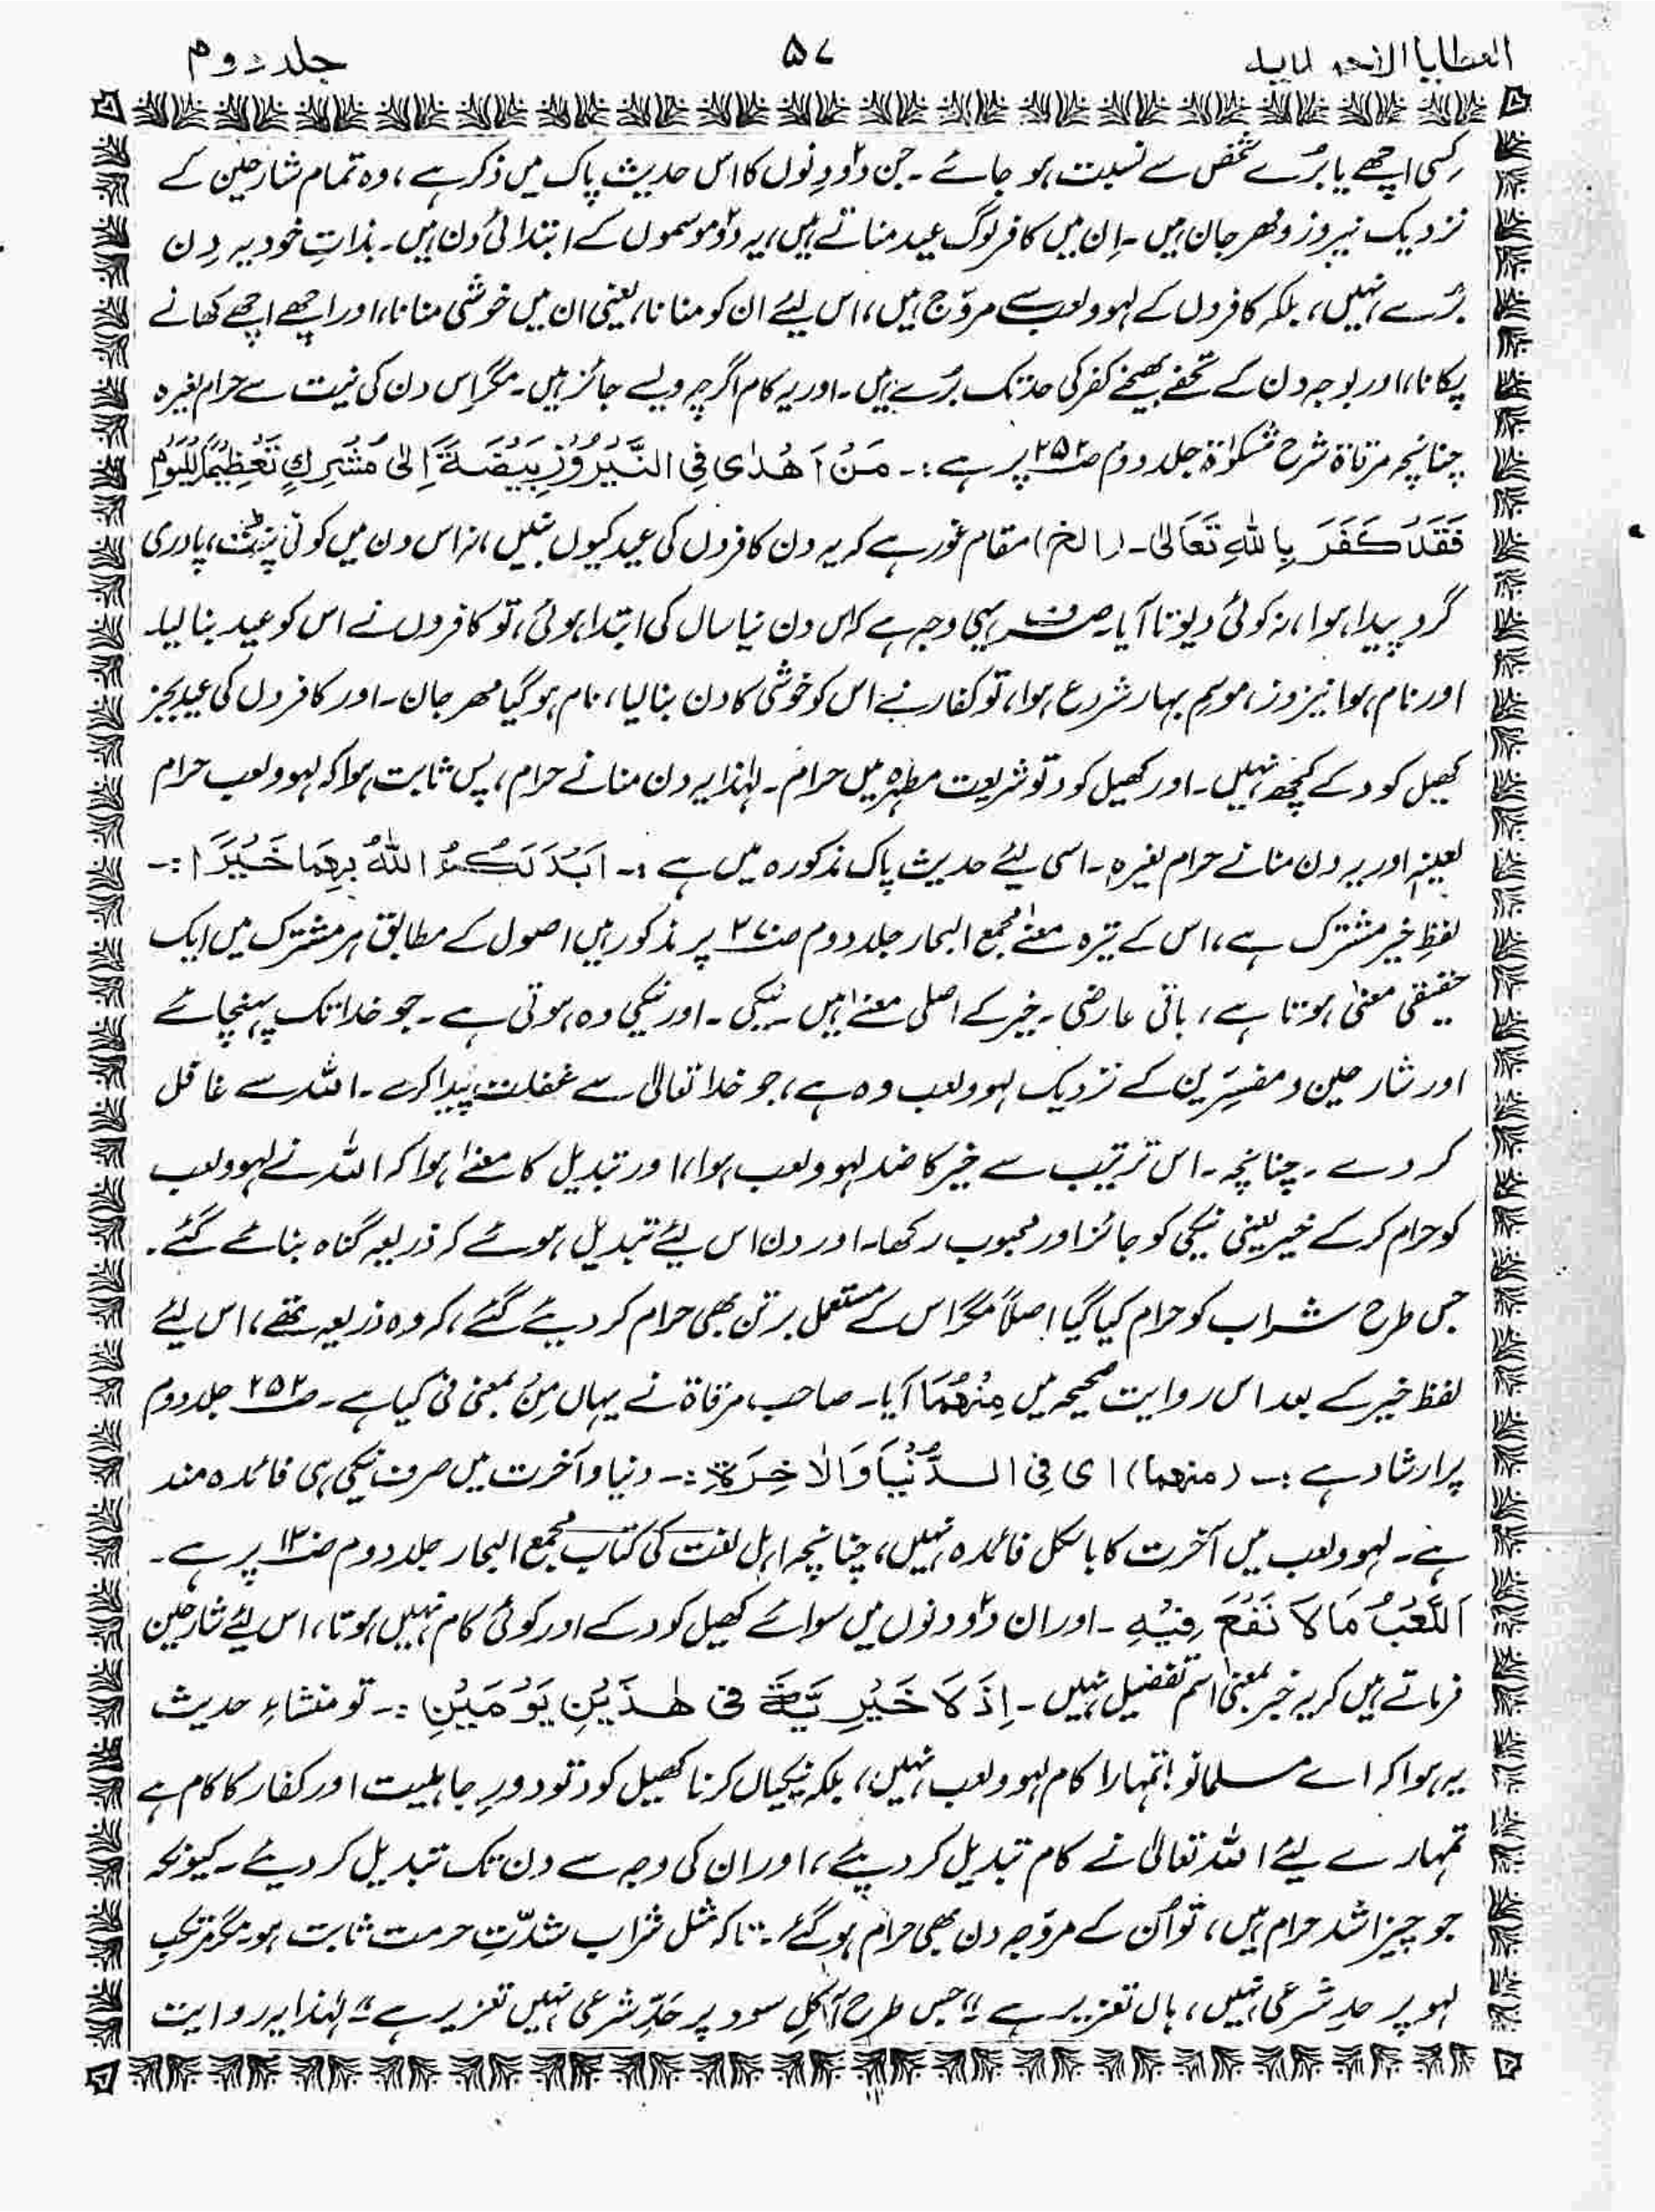 العطایا الاحمدیہ ۵۷ جلد دوم
کسی اچھے یا بُرے شخص سے نسبت ہو جائے۔ جن دوٗ دِنوں کا اس حدیث پاک میں ذکر ہے، وہ تمام شارحین کے
نزدیک نیروز و مھرجان ہیں۔ اِن میں کافر لوگ عید مناتے ہیں، یہ دوٗ موسموں کے ابتدائی دن ہیں۔ بذاتِ خود یہ دِن
بُرے نہیں، بلکہ کافروں کے لہو ولعب سے مروّج ہیں، اس لیئے ان کو منانا، یعنی ان میں خوشی منانا، اور اچھے اچھے کھانے
پکانا، اور بوجہ دن کے تحفے بھیجنے کفر کی حد تک بُرے ہیں۔ اور یہ کام اگرچہ ویسے جائز ہیں۔ مگر اِس دن کی نیت سے حرام لغیرہ
چنانچہ مرقاۃ شرح مشکوٰۃ جلد دوم صـ۲۵۲ پر ہے:۔ مَنْ اَهْدٰى فِى النَّيْرُوْزِ بِبَيْضَةً اِلٰى مُشْرِكٍ تَعْظِيْمًا لِلْيَوْمِ
فَقَدْ كَفَرَ بِاللهِ تَعَالٰى۔ (الخ) مقام غور ہے کہ یہ دن کافروں کی عید کیوں بنیں، نہ اس دن میں کوئی پنڈت، پادری
گرو پیدا ہوا، نہ کوئی دیوتا آیا۔ صرف یہی وجہ ہے کہ اس دن نیا سال کی ابتدا ہوئی، تو کافروں نے اس کو عید بنا لیا۔
اور نام ہوا نیروز، موسمِ بہار شروع ہوا، تو کفار نے اس کو خوشی کا دن بنا لیا، نام ہو گیا مھرجان۔ اور کافروں کی عید بجز
کھیل کود کے کچھ نہیں۔ اور کھیل کود تو شریعت مطہرہ میں حرام۔ لہٰذا یہ دن منانے حرام، پس ثابت ہوا کہ لہو ولعب حرام
لعینہٖ اور یہ دن منانے حرام لغیرہٖ۔ اسی لیئے حدیث پاک مذکورہ میں ہے :۔ اَبْدَلَكُمُ اللهُ بِهِمَا خَيْرًا :۔
لفظِ خیر مشترک ہے، اس کے تیرہ معنےٰ مجمع البحار جلد دوم صـ۲۷ پر مذکور ہیں اصول کے مطابق ہر مشترک میں ایک
حقیقی معنیٰ ہوتا ہے، باقی عارضی۔ خیر کے اصلی معنےٰ ہیں۔ نیکی۔ اور نیکی وہ ہوتی ہے۔ جو خدا تک پہنچائے
اور شارحین و مفسِّرین کے نزدیک لہو ولعب وہ ہے، جو خدا تعالیٰ سے غفلت پیدا کرے۔ اللہ سے غافل
کر دے۔ چنانچہ۔ اس ترتیب سے خیر کا ضد لہو ولعب ہوا، اور تبدیل کا معنےٰ ہوا کہ اللہ نے لہو ولعب
کو حرام کر کے خیر یعنی نیکی کو جائز اور محبوب رکھا۔ اور دن اس لیئے تبدیل ہوئے کہ ذریعہ گناہ بنائے گئے۔
جس طرح شراب کو حرام کیا گیا اصلاً مگر اس کے مستعمل برتن بھی حرام کر دیئے گئے، کہ وہ ذریعہ تھے، اس لیئے
لفظ خیر کے بعد اس روایت صحیحہ میں مِنْهُمَا آیا۔ صاحب مرقاۃ نے یہاں مِنْ بمعنی فی کیا ہے۔ صـ۲۵۲ جلد دوم
پر ارشاد ہے :۔ (منھما) اى فِى الدُّنْيَا وَالْاٰخِرَةِ :۔ دنیا و آخرت میں صرف نیکی ہی فائدہ مند
ہے۔ لہو ولعب میں آخرت کا بالکل فائدہ نہیں، چنانچہ اہل لغت کی کتاب مجمع البحار جلد دوم صـ۱۳ پر ہے۔
اَللَّعْبُ مَا لَا نَفْعَ فِيْهِ۔ اور ان دوٗ دنوں میں سوائے کھیل کود کے اور کوئی کام نہیں ہوتا، اس لیئے شارحین
فرماتے ہیں کہ یہ خیر بمعنیٰ اسم تفضیل نہیں۔ اِذْ لَا خَيْرِيَّةَ فى هٰذَيْنِ يَوْمَيْنِ :۔ تو منشاءِ حدیث
یہ ہوا کہ اے مسلمانو! تمہارا کام لہو ولعب نہیں، بلکہ نیکیاں کرنا کھیل کود تو دورِ جاہلیت اور کفار کا کام ہے
تمہارے لیئے اللہ تعالیٰ نے کام تبدیل کر دیئے، اور ان کی وجہ سے دن تک تبدیل کر دیئے۔ کیونکہ
جو چیز اشد حرام ہیں، تو اُن کے مروّجہ دن بھی حرام ہو گئے۔ تاکہ مثل شراب شدّتِ حرمت ثابت ہو۔ مگر مرتکب
لہو پر حدِ شرعی نہیں، ہاں تعزیر ہے "جس طرح آکلِ سود پر حَدِّ شرعی نہیں تعزیر ہے" لہٰذا یہ روایت